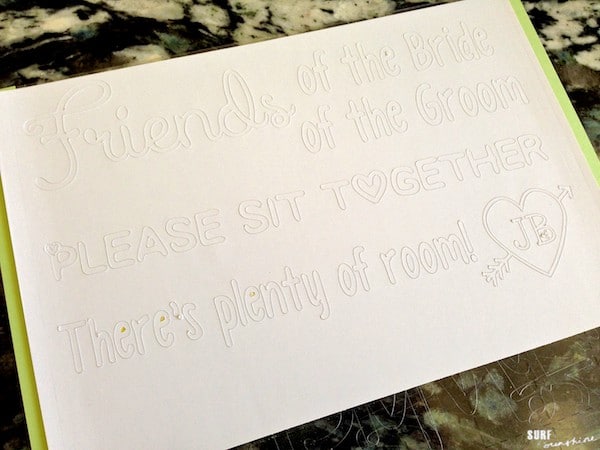 Friends of the Bride
of the Groom
PLEASE SIT T♡GETHER
There's plenty of room! JB
SURF
sunshine